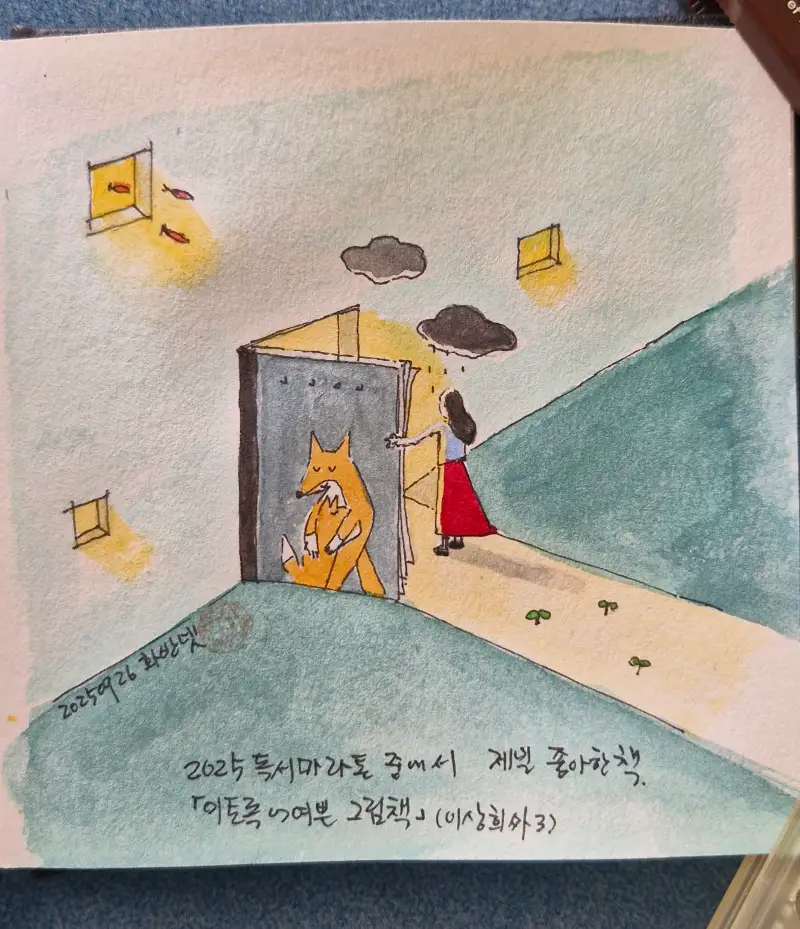 20250926 화방넷
2025 독서마라톤 중에서 제일 좋아한 책.
「이토록 어여쁜 그림책」 (이상희 外 3)